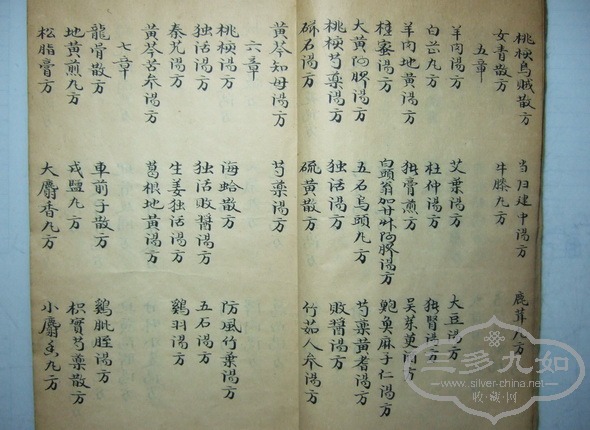 桃梗烏賊散方 当归建中湯方 鹿茸丸方
女青散方 牛膝丸方
五章
羊肉湯方 艾葉湯方 大豆湯方
白芷丸方 杜仲湯方 腎湯方
羊肉地黄湯方 膏煎方 吴茱萸湯方
蜜湯方 白頭翁加甘艸阿膠湯方 鮑臭麻子仁湯方
大黄阿膠湯方 五石烏頭丸方 芍薬黄耆湯方
桃梗芍薬湯方 独活湯方 敗醤湯方
石湯方 硫黄散方 竹茹人参湯方
黄芩知母湯方 芍薬湯方
六章
桃梗湯方 海蛤散方 防風竹葉湯方
独活湯方 独活敗醤湯方 五石湯方
秦艽湯方 生姜独活湯方 鷄羽湯方
黄芩苦参湯方 葛根地黄湯方
七章
龍骨散方 車前子散方 鷄肶胵湯方
地黄煎丸方 戎鹽丸方 枳實芍薬散方
松脂膏方 大麝香丸方 小麝香丸方
三多九如
www.silver-china.net
收藏网